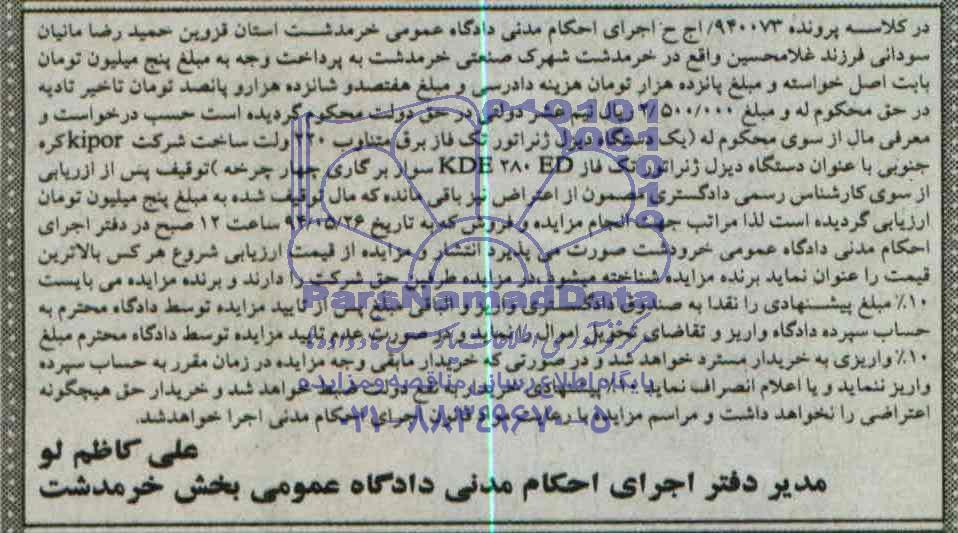 در کلاسه پرونده ۹۴۰۰۷۳/ اج ح اجرای احکام مدنی دادگاه عمومی خرمدشت استان قزوین حمید رضا مانیان
سودانی فرزند غلامحسین واقع در خرمدشت شهرک صنعتی خرمدشت به پرداخت وجه به مبلغ پنج میلیون تومان
بابت اصل خواسته و مبلغ پانزده هزار تومان هزینه دادرسی و مبلغ هفتصدو شانزده هزارو پانصد تومان تاخیر تادیه
در حق محکوم له و مبلغ ۲/۵۰۰/۰۰۰ ریال نیم عشر دولتی در حق دولت محکوم گردیده است حسب درخواست و
معرفی مال از سوی محکوم له (یک دستگاه دیزل ژنراتور تک فاز برق متناوب ولت ساخت شرکت kipor کره
جنوبی با عنوان دستگاه دیزل ژنراتور تک فاز KDE ۲۸۰ ED سوار بر گاری چهار چرخه )توقیف پس از ازریابی
از سوی کارشناس رسمی دادگستری مصون از اعتراض نیز باقی مانده که مال توقیف شده به مبلغ پنج میلیون تومان
ارزیابی گردیده است لذا مراتب جهت انجام مزایده و فروش که به تاریخ ساعت ۱۲ صبح در دفتر اجرای
احکام مدنی دادگاه عمومی خرودشت صورت می پذیرد انتشار و مزایده از قیمت ارزیابی شروع هر کس بالاترین
قیمت را عنوان نماید برنده مزایده شناخته میشود در مزایده طرفین حق شرکت را دارند و برنده مزایده می بایست
۱۰٪ مبلغ پیشنهادی را نقدا به صندوق دادگستری واریز و الباقی مبلغ پس از تایید مزایده توسط دادگاه محترم به
حساب سپرده دادگاه واریز و تقاضای تحویل اموال را نماید و در صورت عدم تایید مزایده توسط دادگاه محترم مبلغ
۱۰٪ واریزی به خریدار مسترد خواهد شد. و در صورتی که خریدار مابقی وجه مزایده در زمان مقرر به حساب سپرده
واریز ننماید و یا اعلام انصراف نماید ۱۰٪ پیشنهادی خریدار به نفع دولت ضبط خواهد شد و خریدار حق هیچگونه
اعتراضی را نخواهد داشت و مراسم مزایده با رعایت قانون اجرای احکام مدنی اجرا خواهدشد.
علی کاظم لو
مدیر دفتر اجرای احکام مدنی دادگاه عمومی بخش خرمدشت
ParsNamadData
پایگاه اطلاع رسانی مناقصه و مزایده
۰۲۱-۸۸۳۴۹۶۷۰-۵